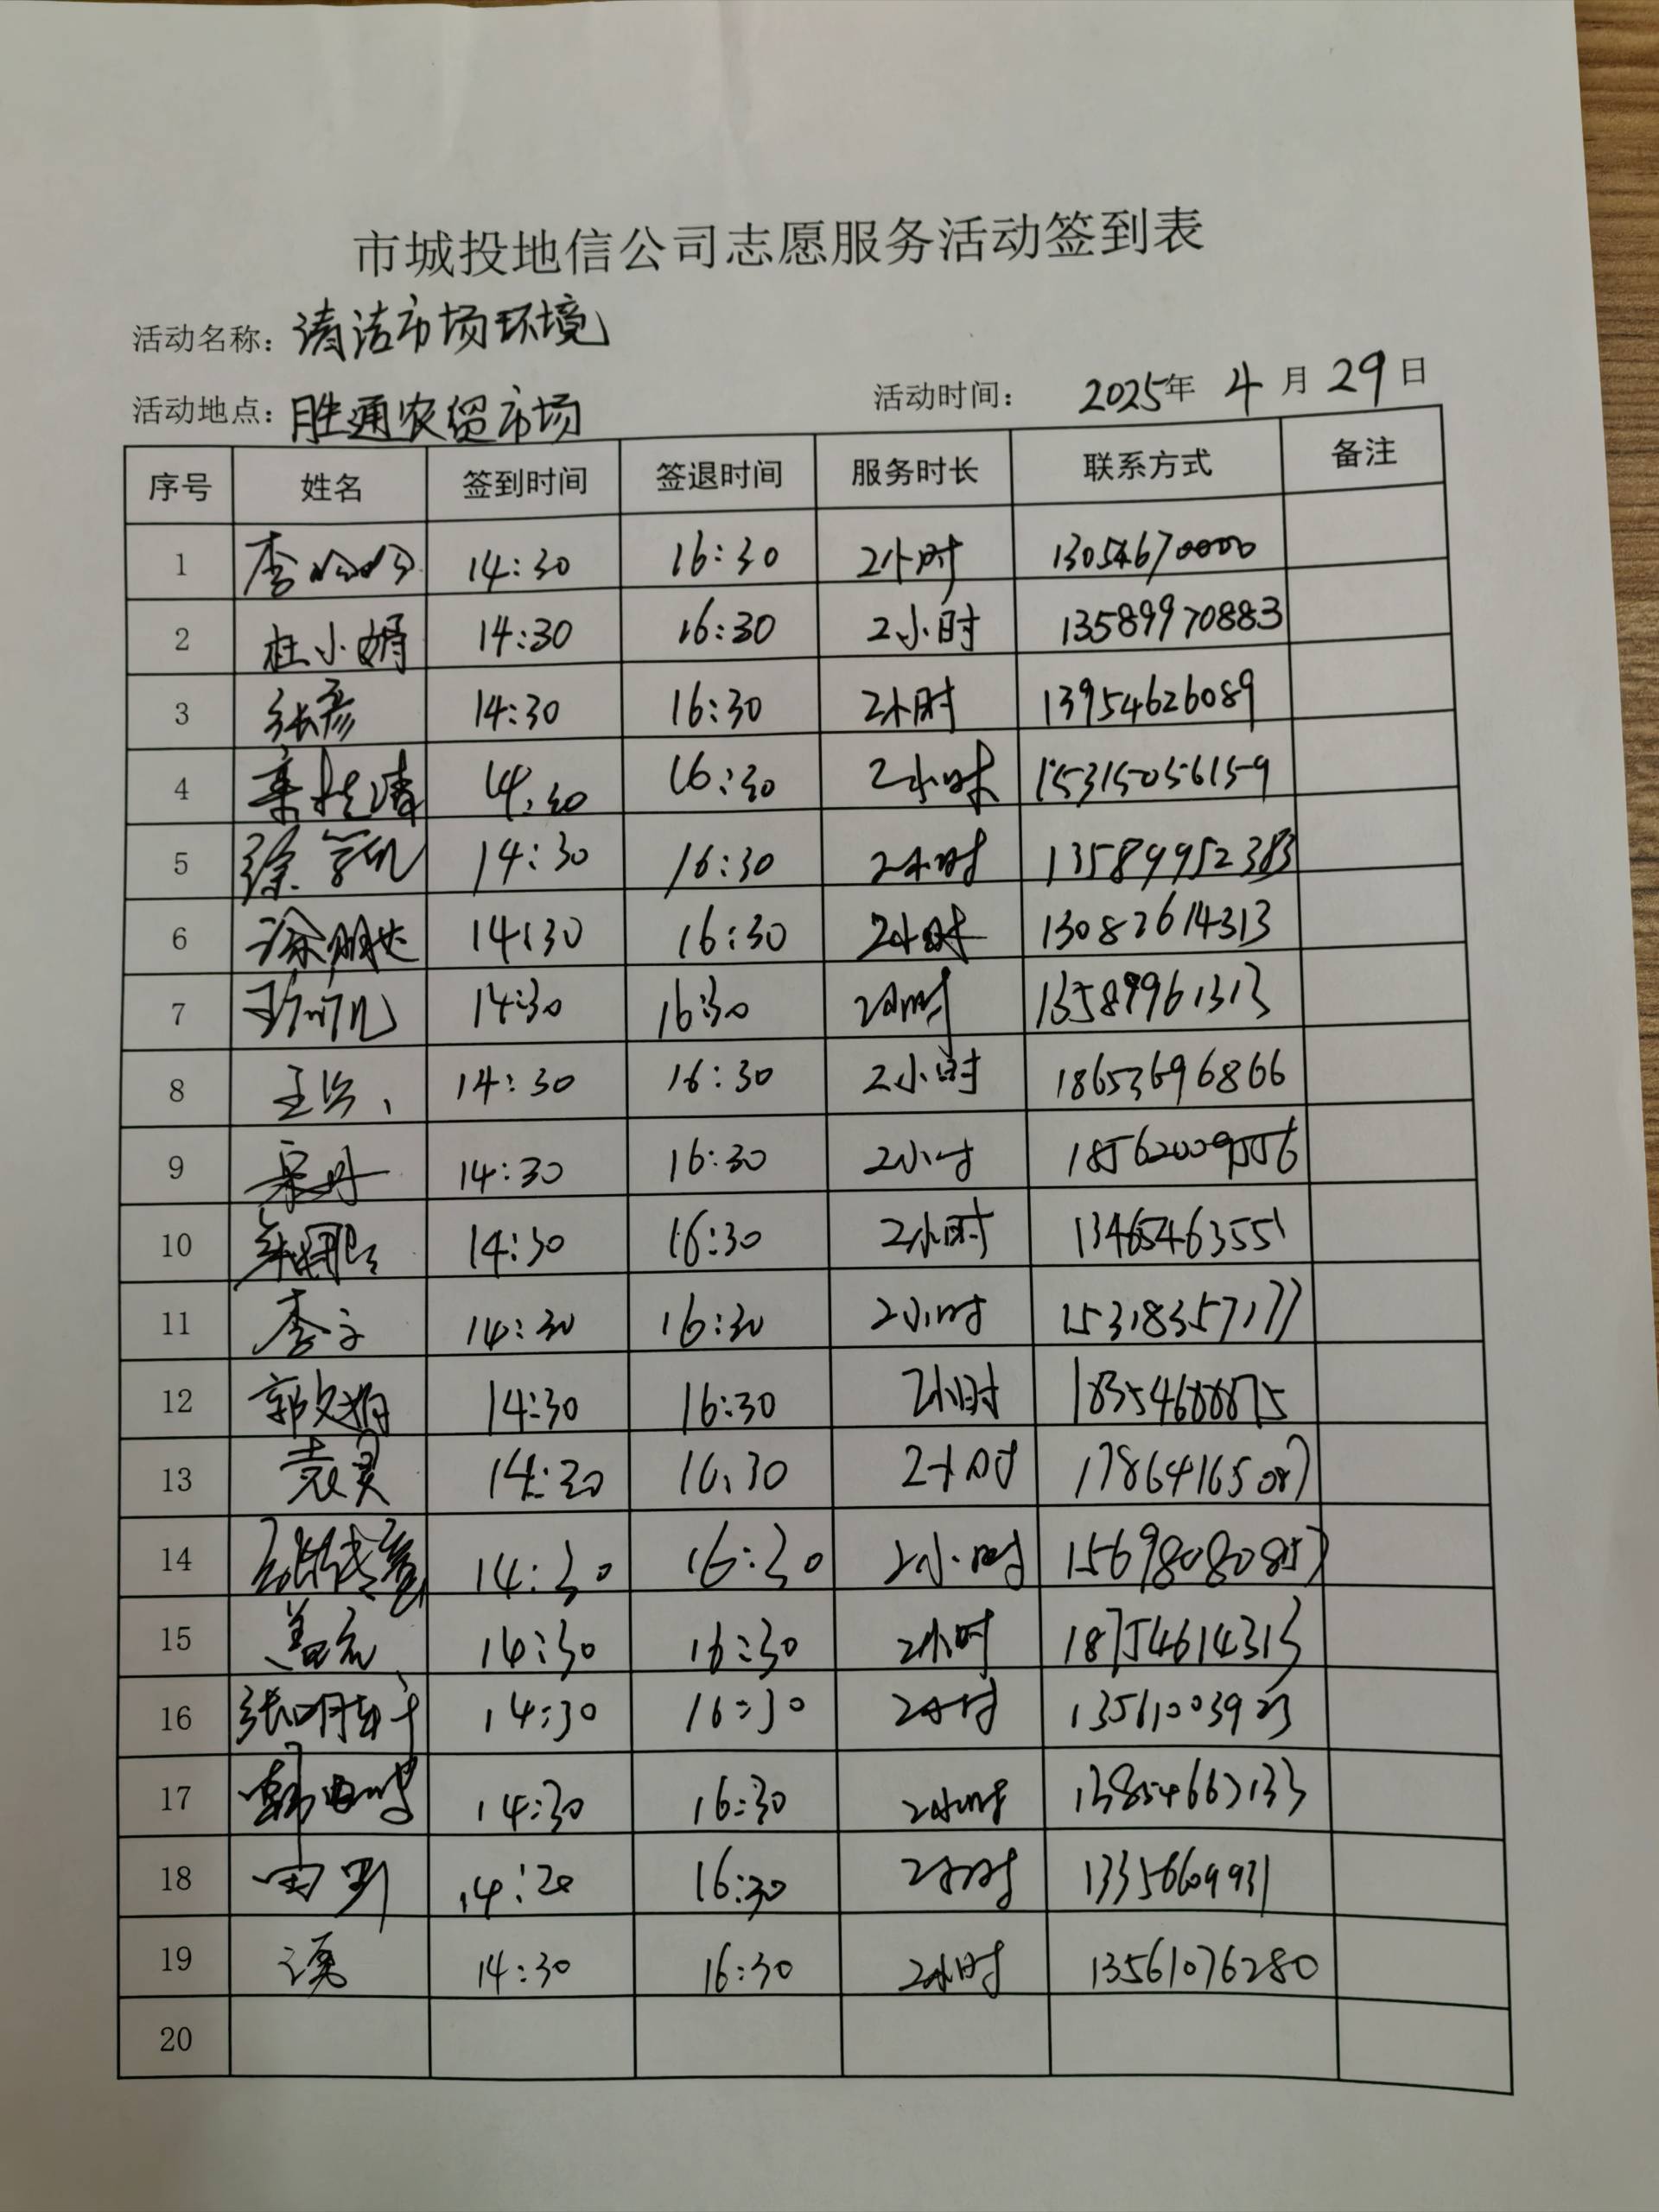 市城投地信公司志愿服务活动签到表
活动名称：清洁市场环境
活动地点：胜通农贸市场 活动时间： 2025年 4月29日
序号 姓名 签到时间 签退时间 服务时长 联系方式 备注
1 李 14:30 16:30 2小时 13054670000
2 杜小娟 14:30 16:30 2小时 13589970883
3 张彦 14:30 16:30 2小时 13954626089
4 14:30 16:30 2小时 15315056159
5 徐 14:30 16:30 2小时 13589952383
6 徐 14:30 16:30 2小时 13082614313
7 14:30 16:30 2小时 13589961313
8 王 14:30 16:30 2小时 18653696866
9 14:30 16:30 2小时 18562009556
10 14:30 16:30 2小时 13465463551
11 李 14:30 16:30 2小时 15318357177
12 郭文娟 14:30 16:30 2小时 18354688875
13 袁灵 14:30 16:30 2小时 17864165087
14 14:30 16:30 2小时
15 盖 14:30 16:30 2小时 18754614313
16 张 14:30 16:30 2小时 13561003923
17 韩 14:30 16:30 2小时
18 14:20 16:30 2小时 13356609931
19 14:30 16:30 2小时 13561076280
20